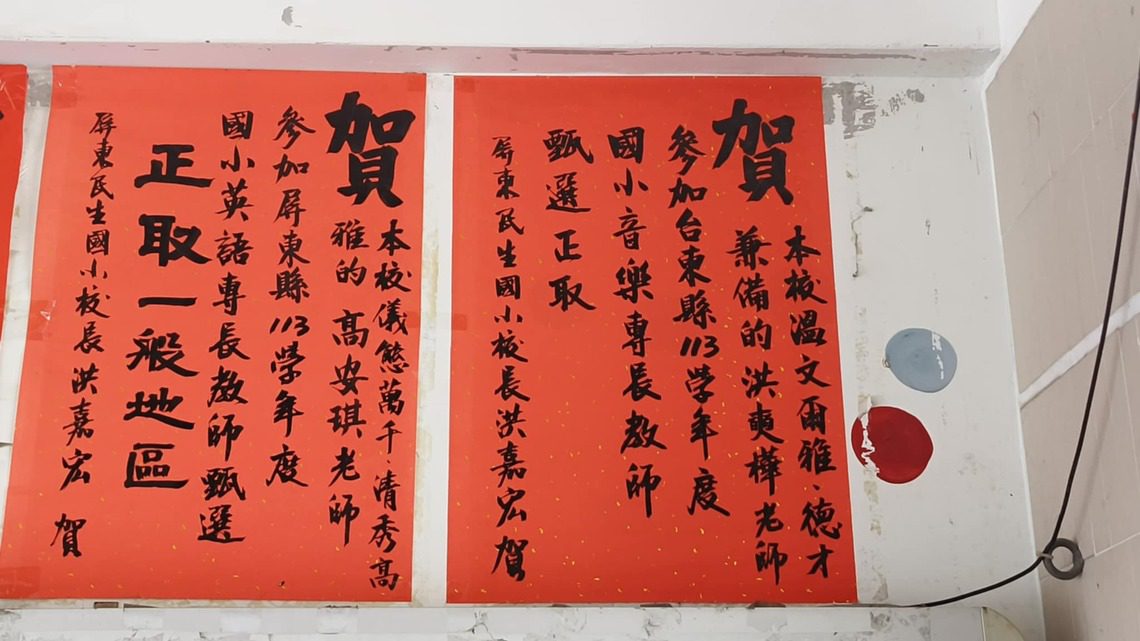 賀
本校溫文爾雅．德才
兼備的洪奭樺老師
參加台東縣113學年度
國小音樂專長教師
甄選正取
屏東民生國小校長洪嘉宏 賀
賀
本校儀態萬千．清秀高
雅的高安琪老師
參加屏東縣113學年度
國小英語專長教師甄選
正取一般地區
屏東民生國小校長洪嘉宏 賀